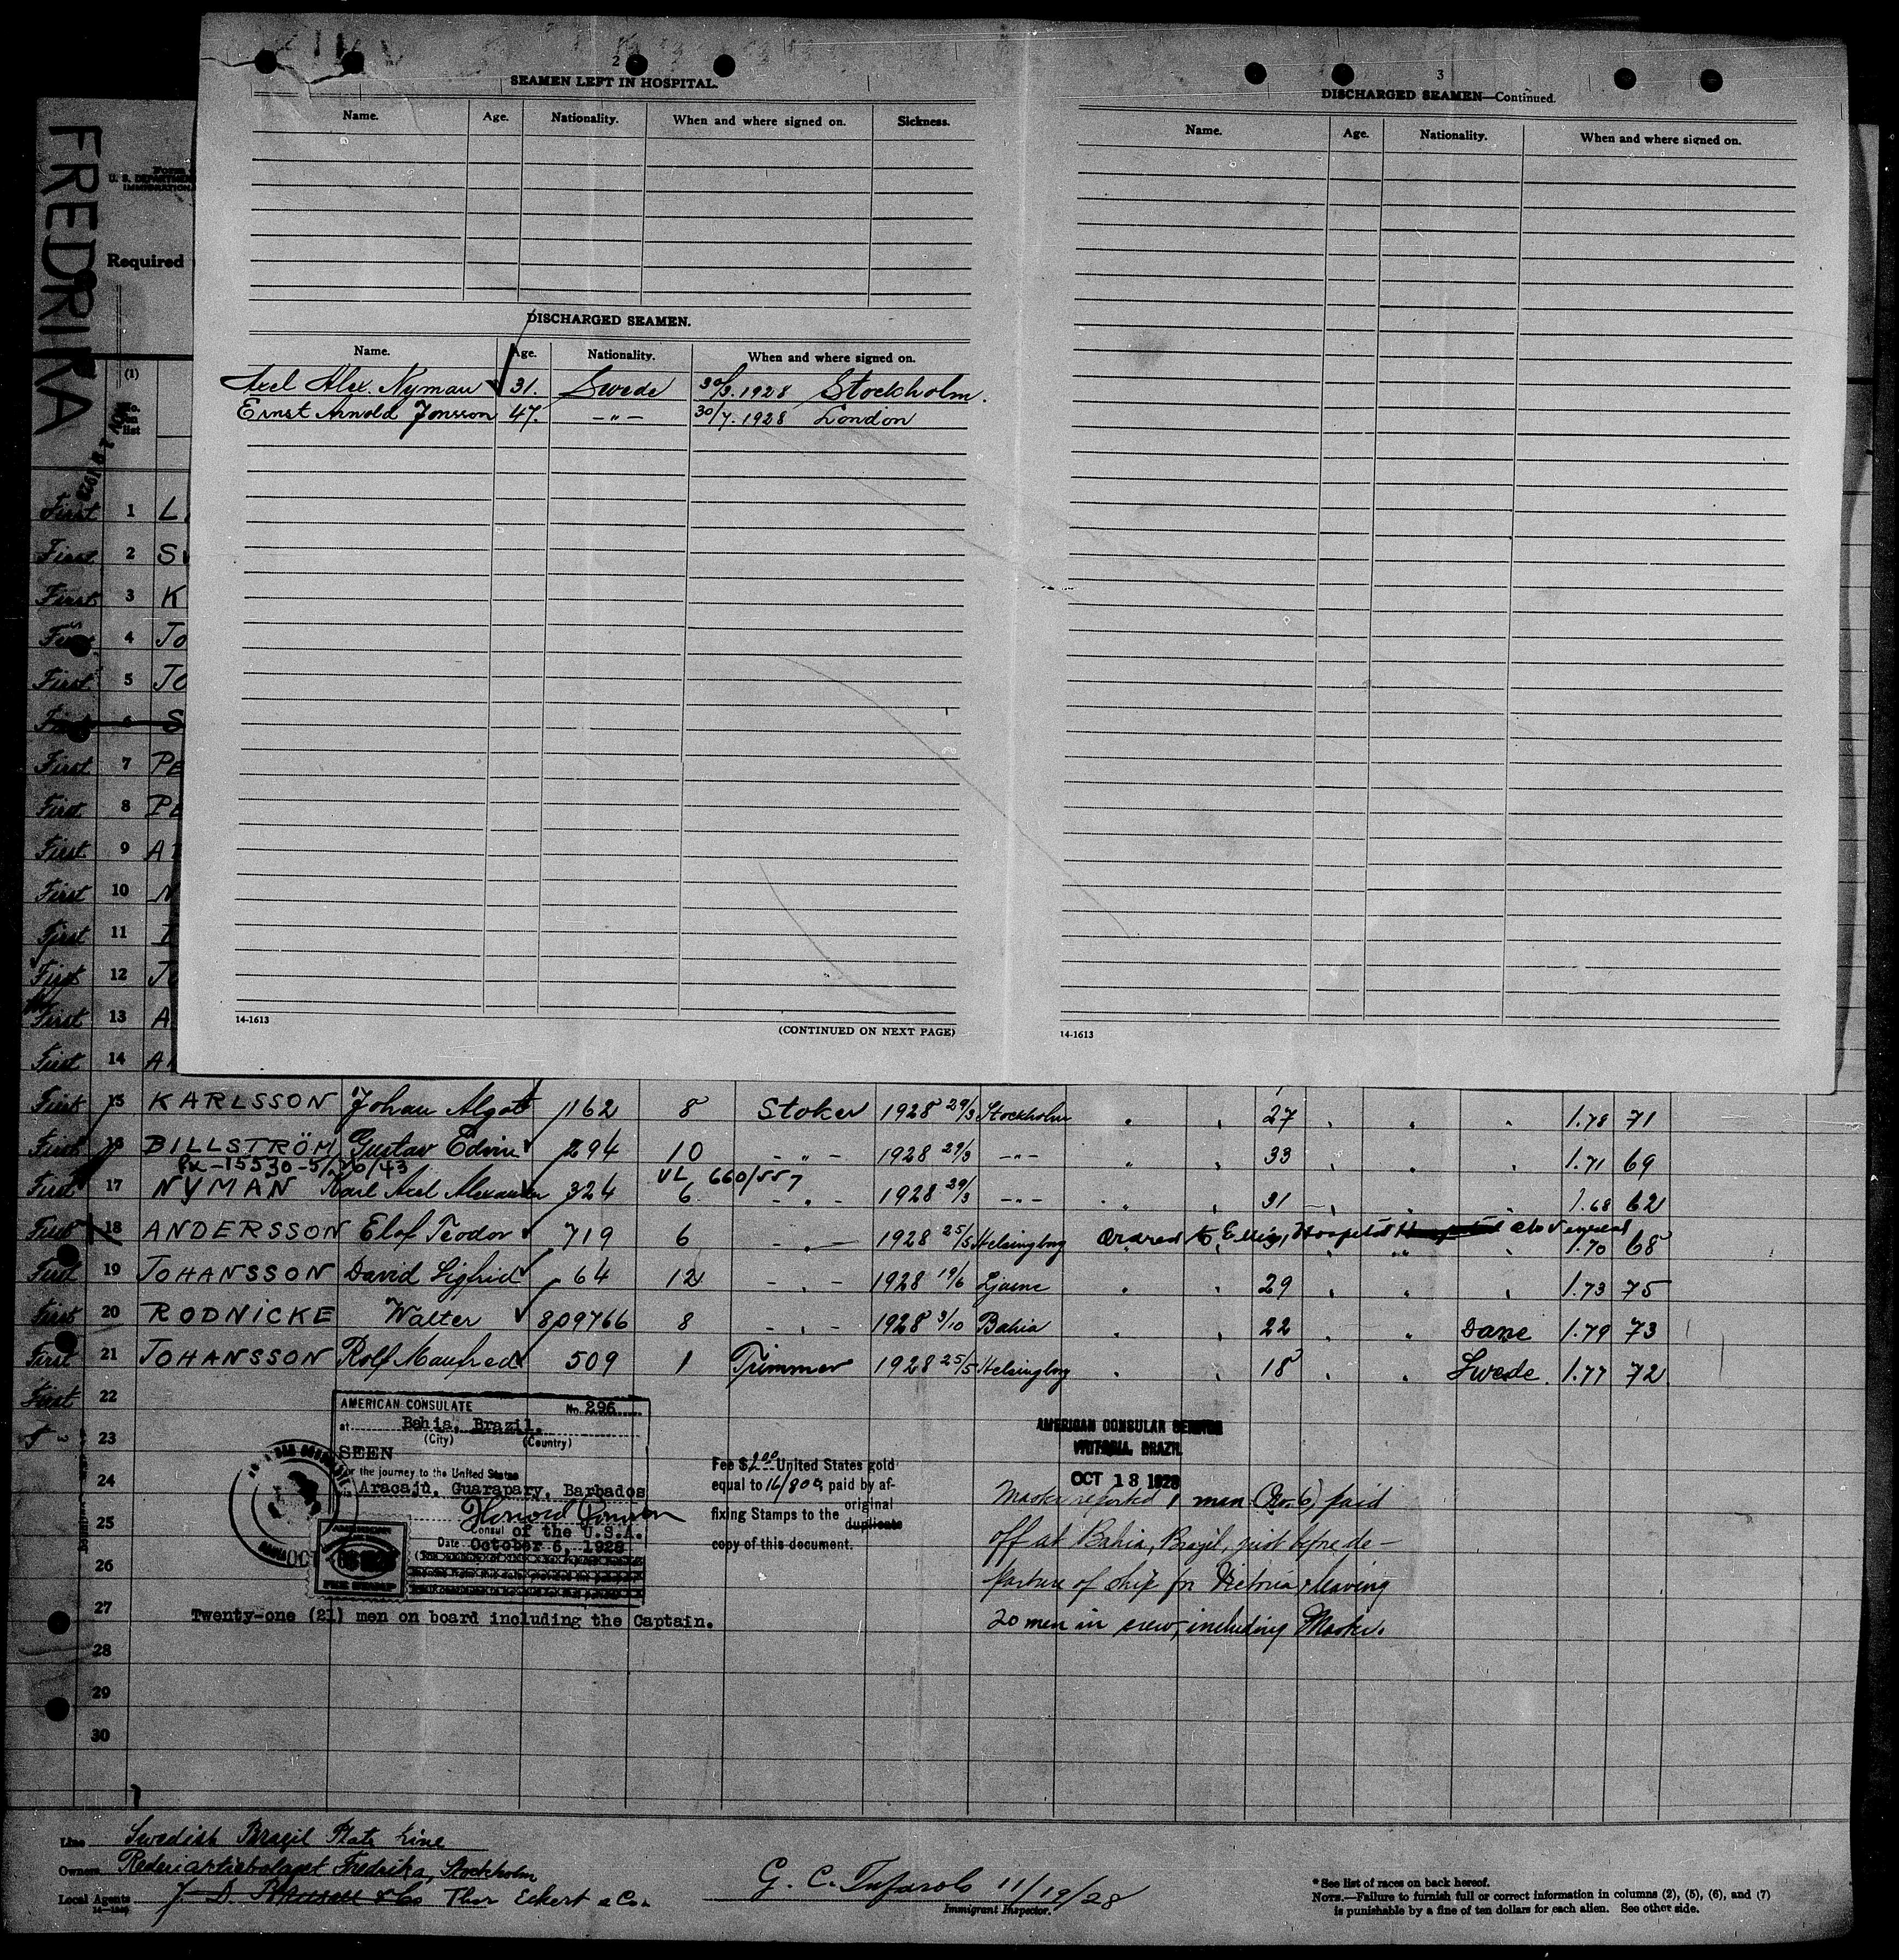 2
SEAMEN LEFT IN HOSPITAL.
Name. Age. Nationality. When and where signed on. Sickness.
DISCHARGED SEAMEN.
Name. Age. Nationality. When and where signed on.
Axel Alex. Nyman 31. Swede 30/3.1928 Stockholm.
Ernst Arnold Jonsson 47. -"- 30/7.1928 London
14-1613
(CONTINUED ON NEXT PAGE)
3
DISCHARGED SEAMEN—Continued.
Name. Age. Nationality. When and where signed on.
14-1613
FREDRIKA
Form
U. S. DEPARTMENT
IMMIGRATION
Required
(1)
No. on list
First 1 L
First 2 S
First 3 K
First 4 JO
First 5 JO
First 6 S
First 7 PE
First 8 PE
First 9 A
First 10 N
First 11
First 12 JO
First 13 A
First 14 A
First 15 KARLSSON Johan Algot 162 8 Stoker 1928 29/3 Stockholm " " 27 " " " 1.78 71
First 16 BILLSTRÖM Gustav Edvin 294 10 - " - 1928 29/3 -"- " " 33 " " " 1.71 69
Px-15530-5/26/43 VL 660/557
First 17 NYMAN Karl Axel Alexander 324 6 - " - 1928 29/3 -"- " " 31 " " " 1.68 62
First 18 ANDERSSON Elof Teodor 719 6 - " - 1928 25/5 Helsingborg 1.70 68
Ordered to Ellis Hospital
First 19 JOHANSSON David Sigfrid 64 12 - " - 1928 19/6 Ljusne " " 29 " " " 1.73 75
First 20 RODNICKE Walter 809766 8 - " - 1928 3/10 Bahia " " 22 " " Dane 1.79 73
First 21 JOHANSSON Rolf Manfred 509 1 Trimmer 1928 25/5 Helsingborg " " 18 " " Swede. 1.77 72
First 22
23
24
25
26
27
28
29
30
AMERICAN CONSULATE No. 296
at Bahia, Brazil.
(City) (Country)
SEEN
For the journey to the United States
Aracaju, Guarapary, Barbados
Consul of the U.S.A.
Date October 6, 1928
FEE STAMP
Fee $2.00 United States gold
equal to 16/800, paid by af-
fixing Stamps to the original
duplicate
copy of this document.
Twenty-one (21) men on board including the Captain.
AMERICAN CONSULAR SERVICE
VICTORIA, BRAZIL
OCT 13 1928
Master reported 1 man (No. 6) paid
off at Bahia, Brazil, just before de-
parture of ship for Victoria, leaving
20 men in crew, including Master.
Line Swedish Brazil Plate Line
Owners Rederiaktiebolaget Fredrika, Stockholm
Local Agents Thor Eckert & Co.
G. C. Tufarolo 11/19/28
Immigrant Inspector.
* See list of races on back hereof.
NOTE.—Failure to furnish full or correct information in columns (2), (5), (6), and (7)
is punishable by a fine of ten dollars for each alien. See other side.